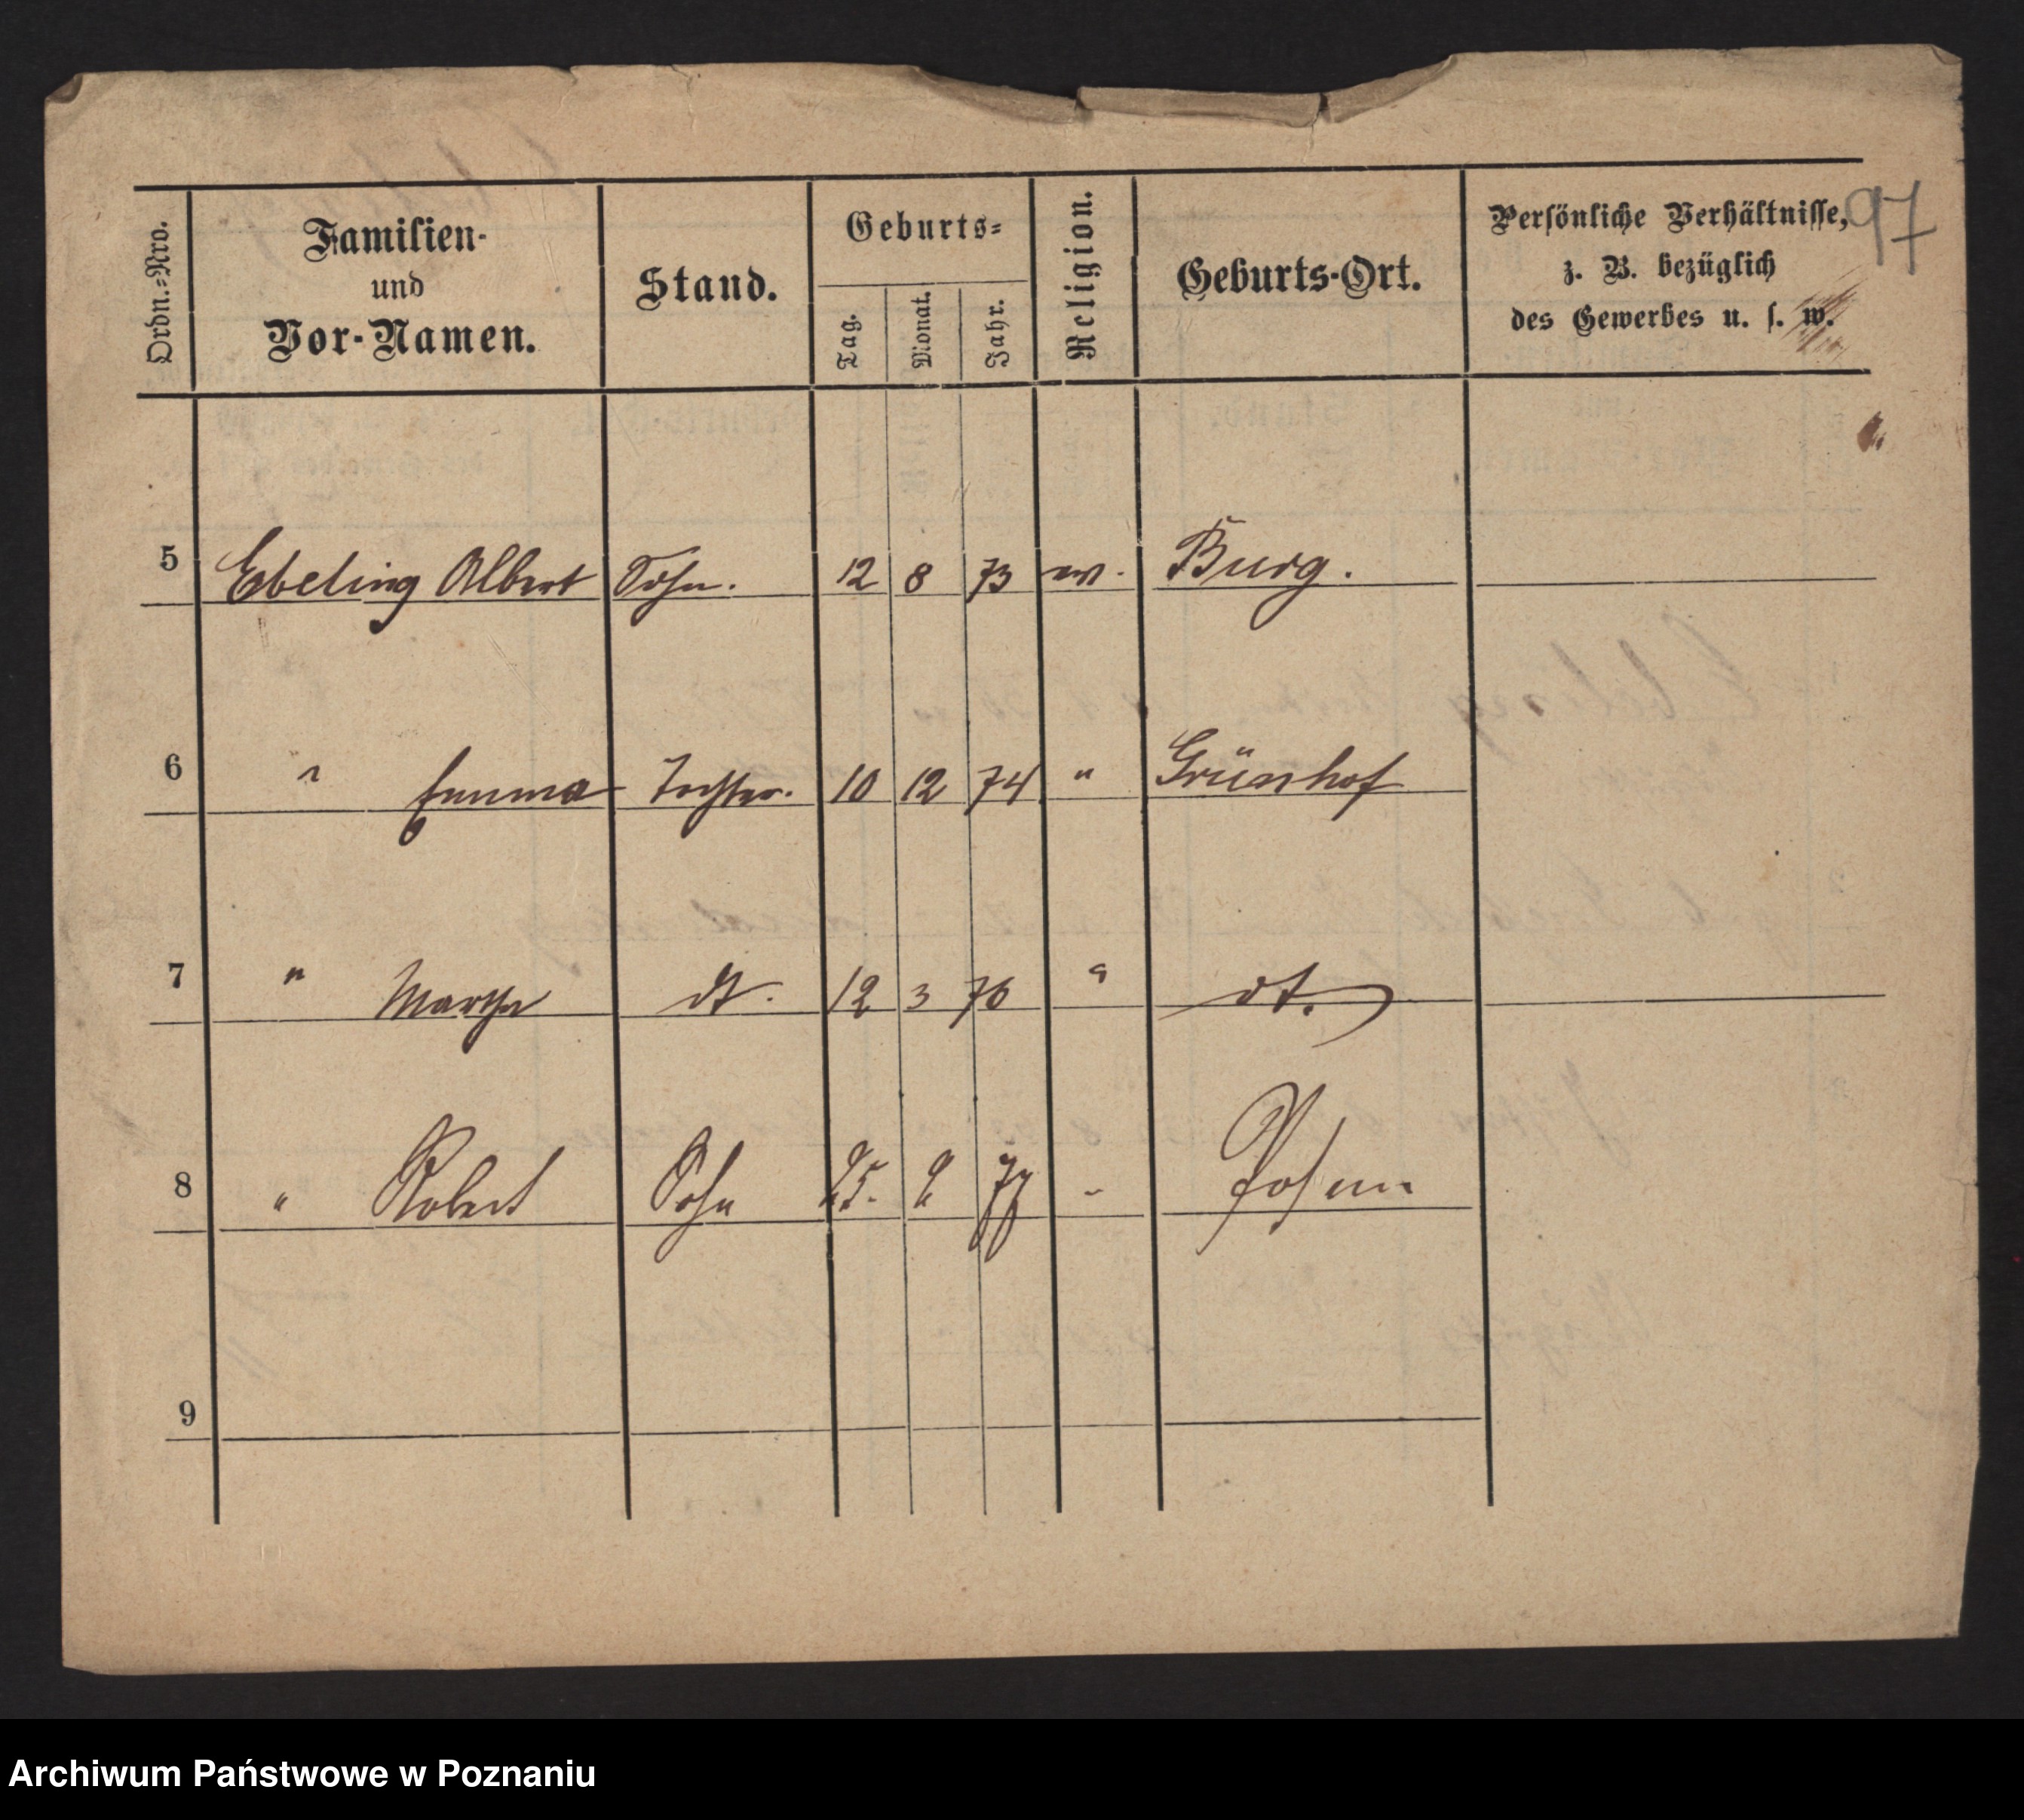 97
Ordn.-Nro.
Familien-
und
Vor-Namen.
Stand.
Geburts-
Tag.
Monat.
Jahr.
Religion.
Geburts-Ort.
Persönliche Verhältnisse,
z. B. bezüglich
des Gewerbes u. s. w.
5 Ebeling Albert Sohn. 12 8 73 ev. Burg.
6 " Emma Tochter. 10 12 74 " Grünhof
7 " Martha dt. 12 3 76 " dt.
8 " Robert Sohn 25. 2 77 " Posen
9
Archiwum Państwowe w Poznaniu